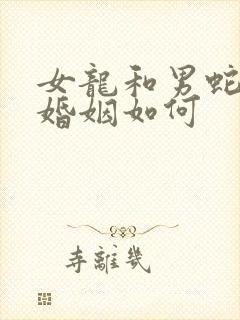 女龍和男蛇
婚姻如何
寺離幾